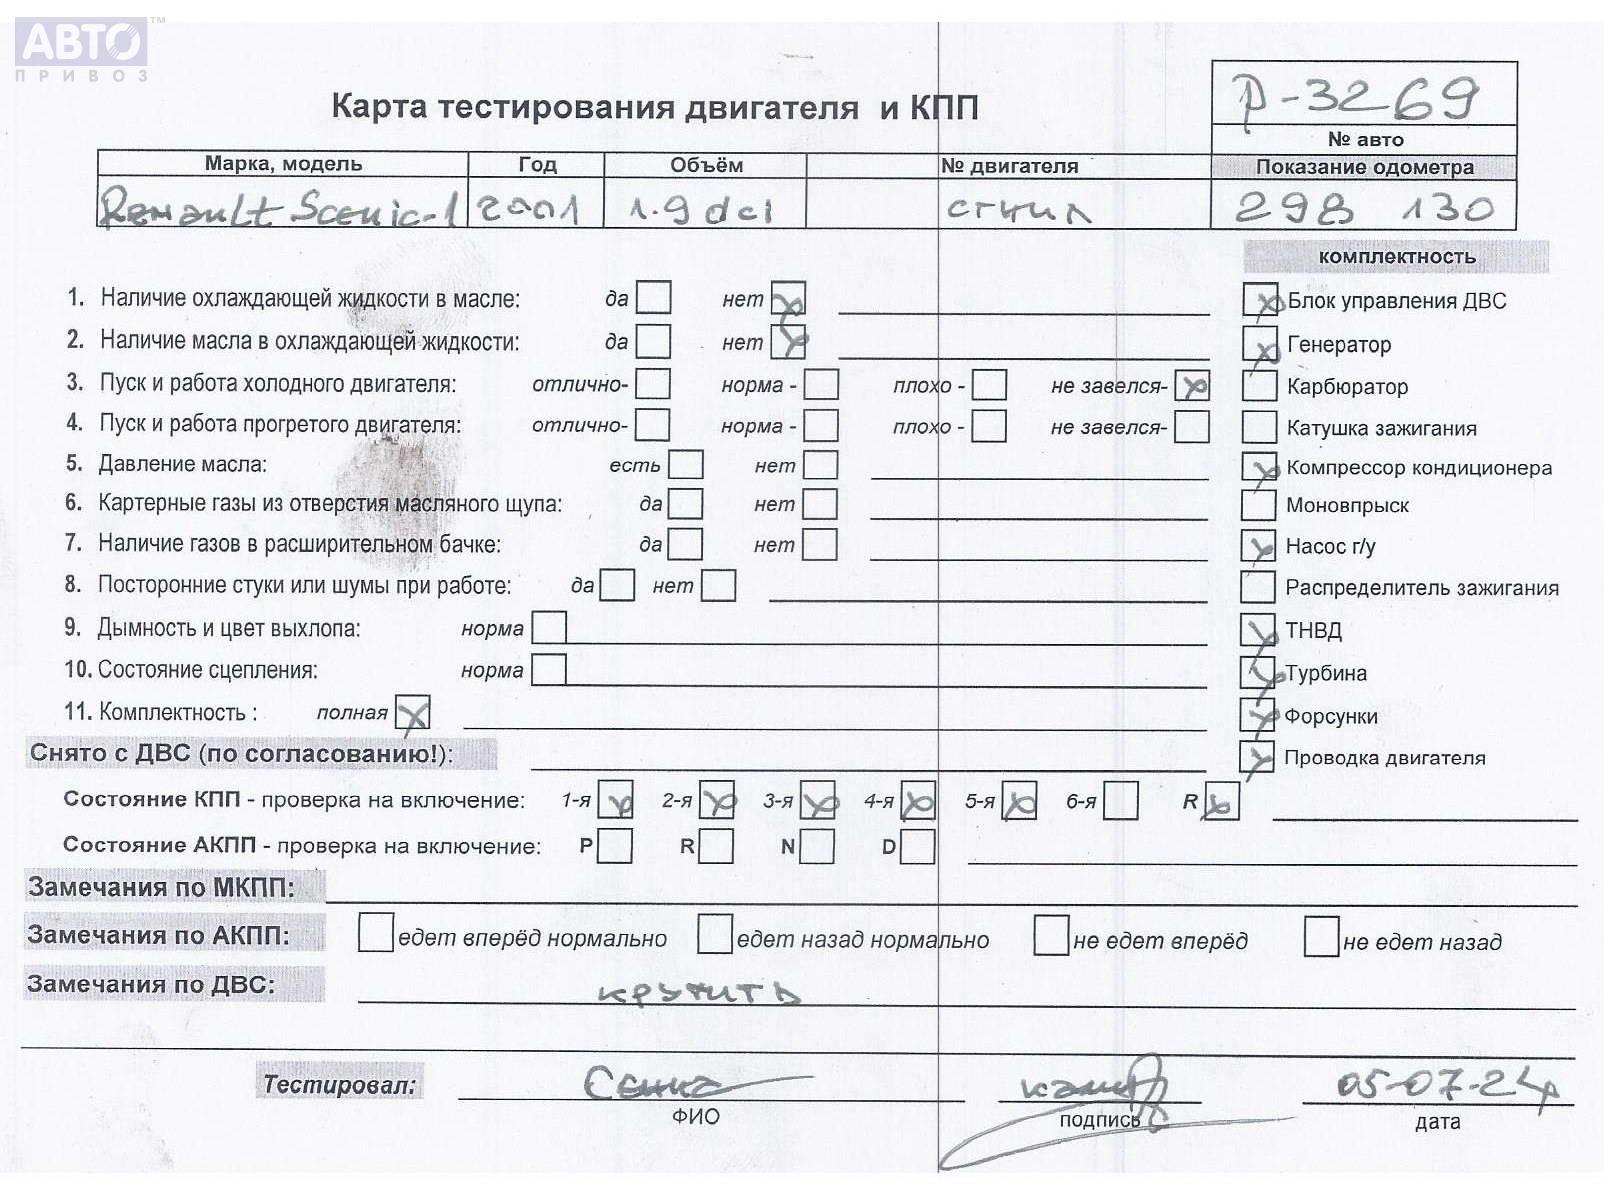 АВТО™
ПРИВОЗ
Карта тестирования двигателя и КПП
P-3269
№ авто
Марка, модель Год Объём № двигателя Показание одометра
Renault Scenic-1 2001 1.9 dci сгнил 298 130
комплектность
1. Наличие охлаждающей жидкости в масле: да нет
Блок управления ДВС
2. Наличие масла в охлаждающей жидкости: да нет
Генератор
3. Пуск и работа холодного двигателя: отлично- норма - плохо - не завелся-
Карбюратор
4. Пуск и работа прогретого двигателя: отлично- норма - плохо - не завелся-
Катушка зажигания
5. Давление масла: есть нет
Компрессор кондиционера
6. Картерные газы из отверстия масляного щупа: да нет
Моновпрыск
7. Наличие газов в расширительном бачке: да нет
Насос г/у
8. Посторонние стуки или шумы при работе: да нет
Распределитель зажигания
9. Дымность и цвет выхлопа: норма
ТНВД
10. Состояние сцепления: норма
Турбина
11. Комплектность : полная
Форсунки
Снято с ДВС (по согласованию!):
Проводка двигателя
Состояние КПП - проверка на включение: 1-я 2-я 3-я 4-я 5-я 6-я R
Состояние АКПП - проверка на включение: P R N D
Замечания по МКПП:
Замечания по АКПП: едет вперёд нормально едет назад нормально не едет вперёд не едет назад
Замечания по ДВС: крутить
Тестировал: 05-07-24
ФИО подпись дата